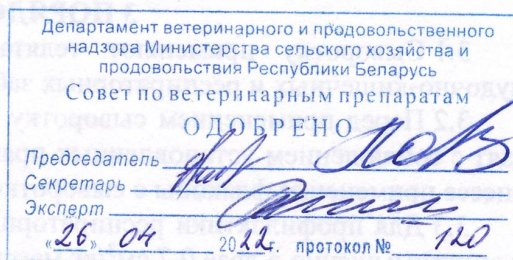 Департамент ветеринарного и продовольственного
надзора Министерства сельского хозяйства и
продовольствия Республики Беларусь
Совет по ветеринарным препаратам
ОДОБРЕНО
Председатель
Секретарь
Эксперт
«26» 04 2022г. протокол № 120